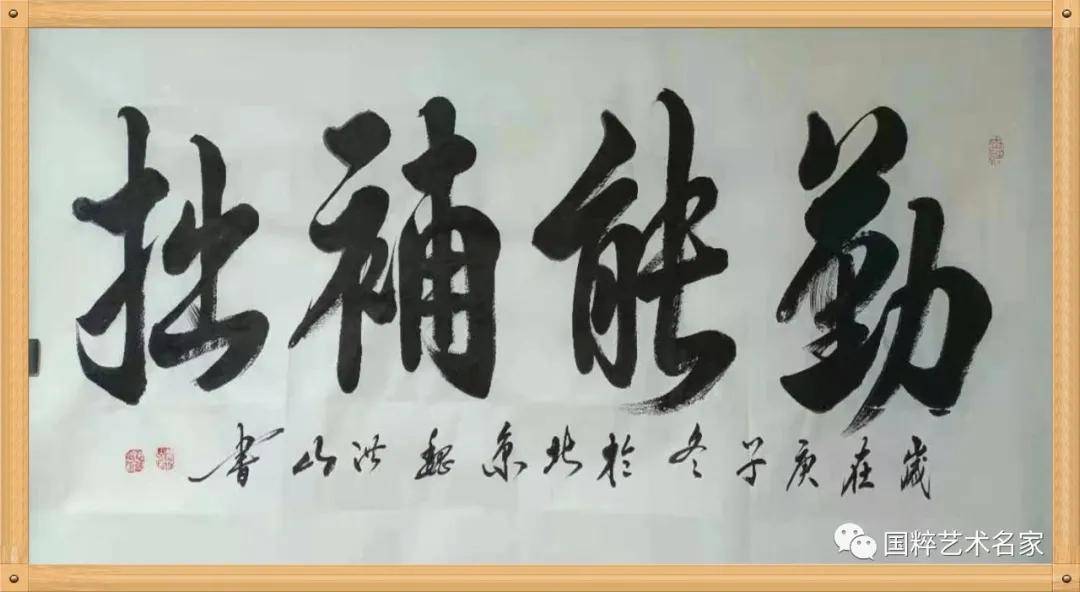 勤能補拙
歲在庚子冬於北京魏洪山書
国粹艺术名家